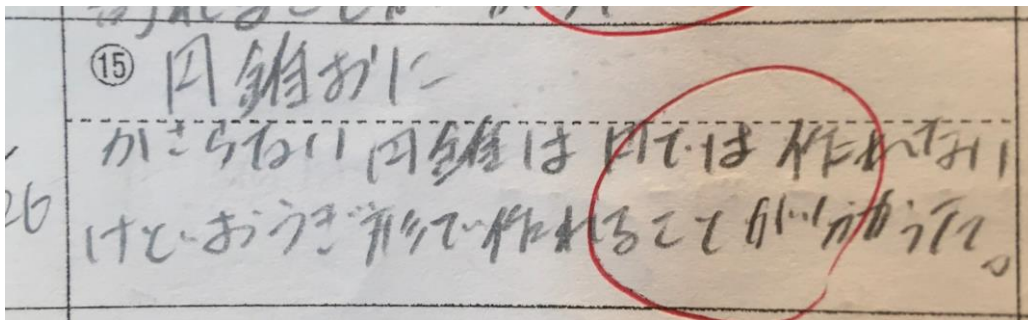 ⑮ 円錐おに
かさらない 円錐は 円では 作れない
26
けど、おうぎ形で作れることがわかった。